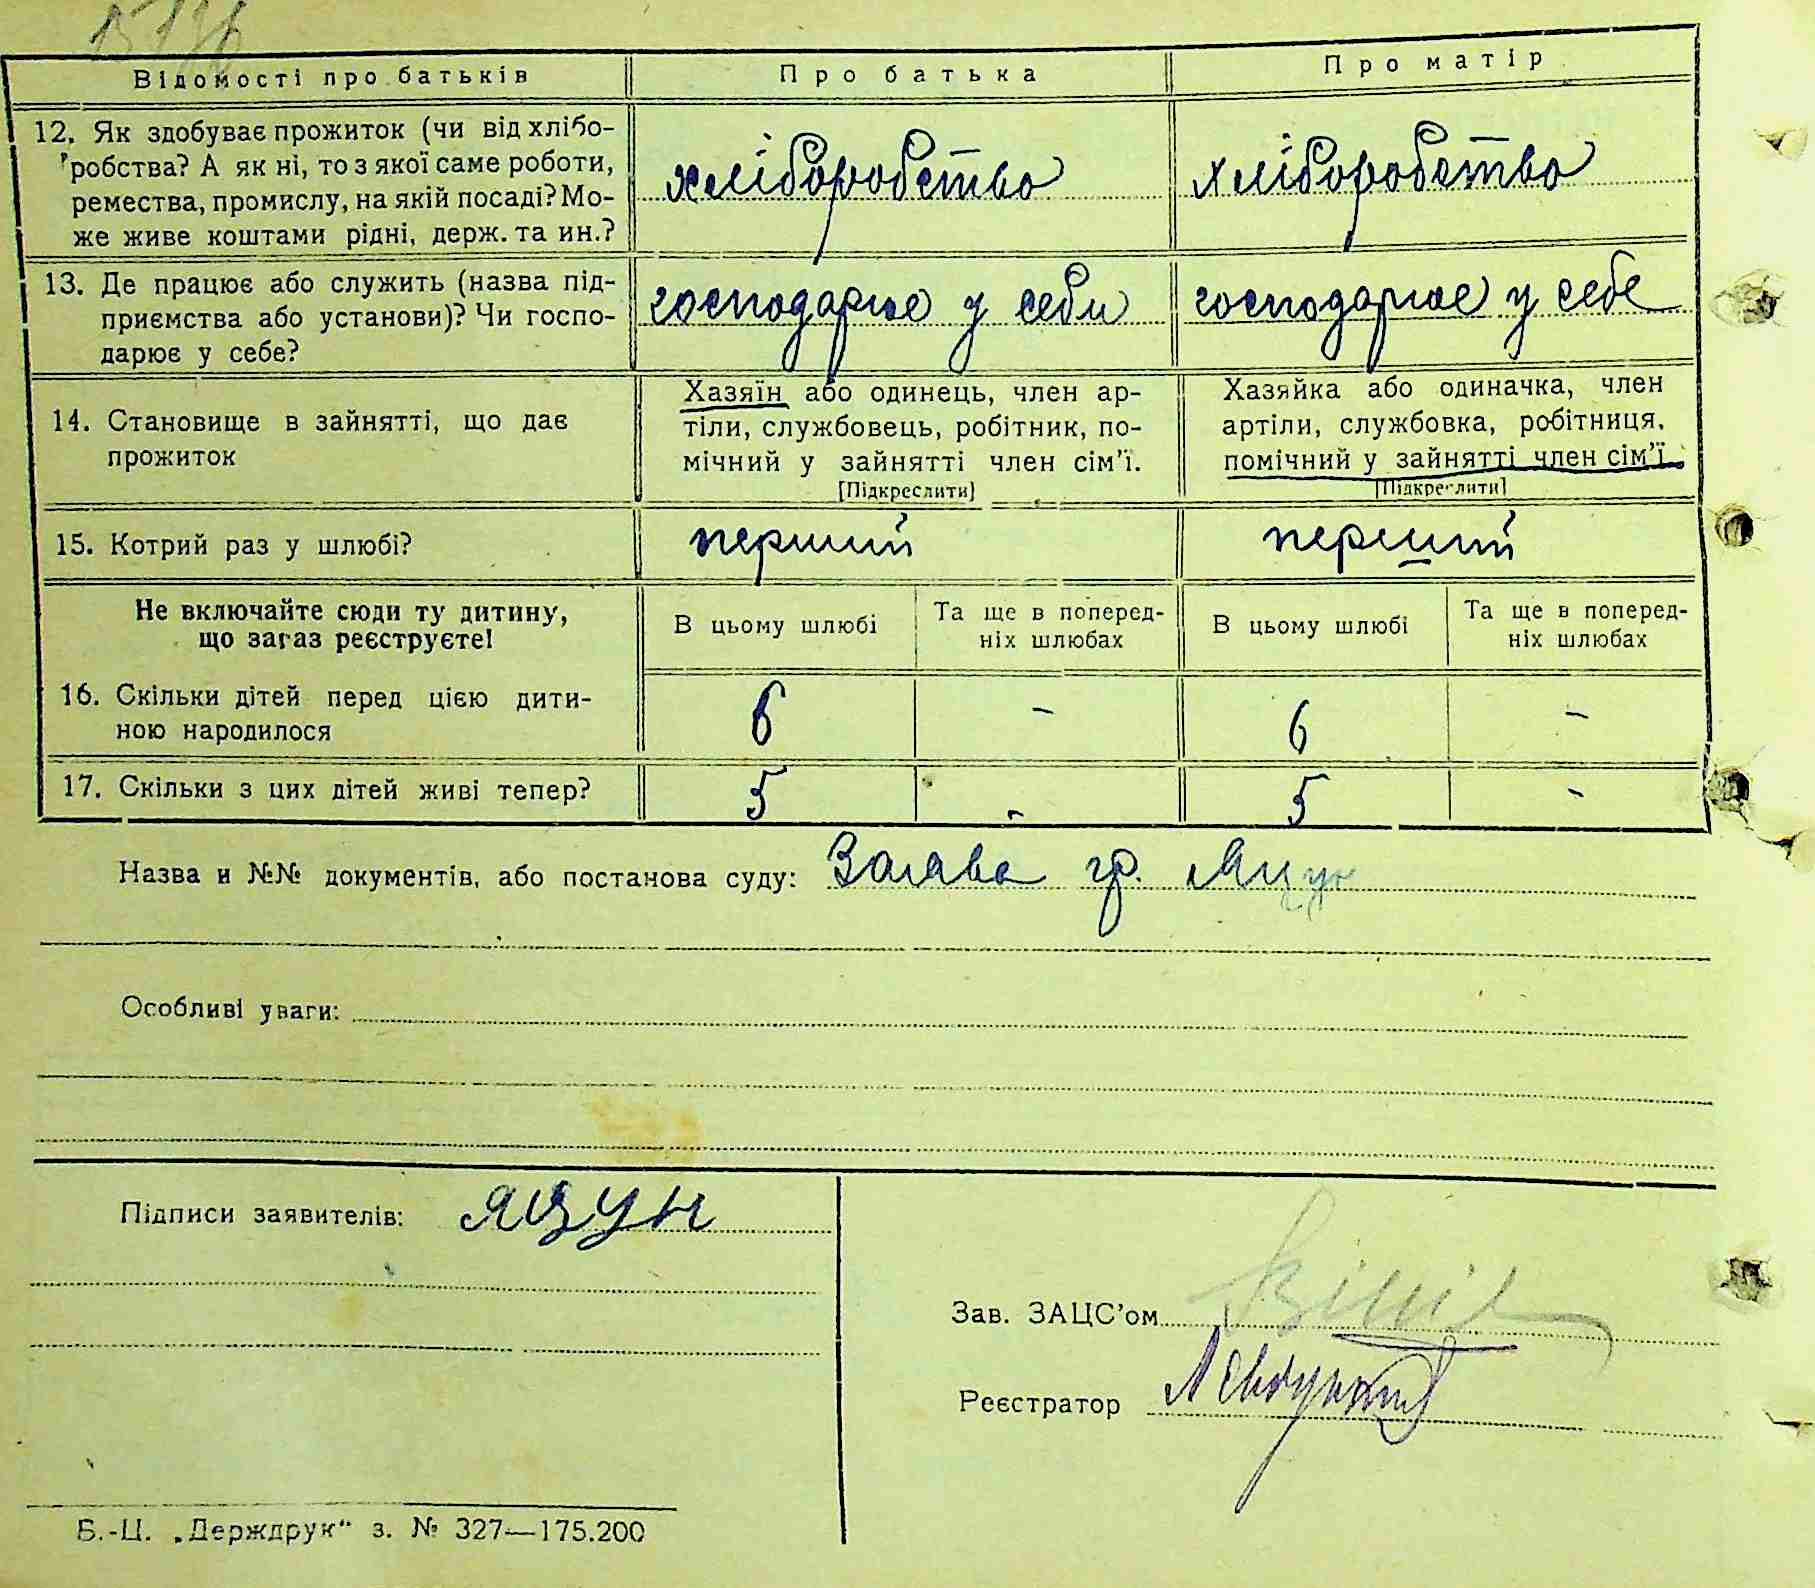 Відомості про батьків Про батька Про матір
12. Як здобуває прожиток (чи від хлібо-
робства? А як ні, то з якої саме роботи,
ремества, промислу, на якій посаді? Мо-
же живе коштами рідні, держ. та ин.?
хліборобство хліборобство
13. Де працює або служить (назва під-
приємства або установи)? Чи госпо-
дарює у себе?
господарює у себи господарює у себе
14. Становище в зайнятті, що дає
прожиток
Хазяїн або одинець, член ар-
тіли, службовець, робітник, по-
мічний у зайнятті член сім'ї.
[Підкреслити]
Хазяйка або одиначка, член
артіли, службовка, робітниця,
помічний у зайнятті член сім'ї.
[Підкреслити]
15. Котрий раз у шлюбі? перший перший
Не включайте сюди ту дитину,
що зараз реєструєте!
В цьому шлюбі
Та ще в поперед-
ніх шлюбах
В цьому шлюбі
Та ще в поперед-
ніх шлюбах
16. Скільки дітей перед цією дити-
ною народилося
6 - 6 -
17. Скільки з цих дітей живі тепер? 5 - 5 -
Назва и №№ документів, або постанова суду: Заява гр. Яцун
Особливі уваги:
Підписи заявителів: Яцун
Зав. ЗАЦС'ом
Реєстратор
Б.-Ц. „Держдрук" з. № 327—175.200